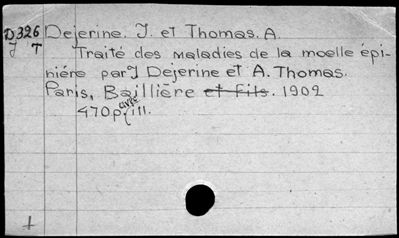 D326 Dejerine. J. et Thomas. A.
J T Traité des maladies de la moelle épi-
niére par J Dejerine et A. Thomas.
Paris, Baillière et fils. 1902
avec
470p. ill.